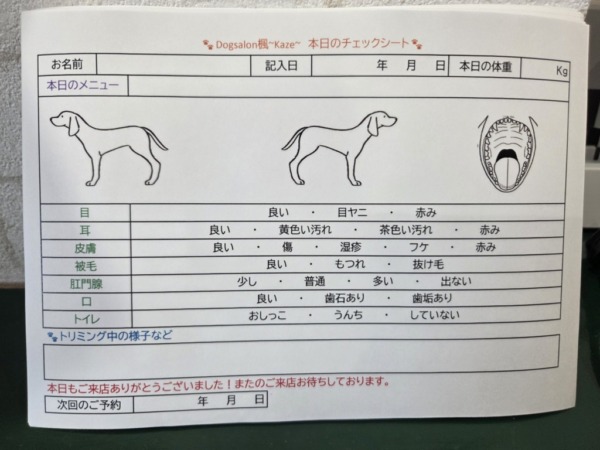 Dogsalon楓~Kaze~ 本日のチェックシート
お名前 記入日 年 月 日 本日の体重 Kg
本日のメニュー
目 良い ・ 目ヤニ ・ 赤み
耳 良い ・ 黄色い汚れ ・ 茶色い汚れ ・ 赤み
皮膚 良い ・ 傷 ・ 湿疹 ・ フケ ・ 赤み
被毛 良い ・ もつれ ・ 抜け毛
肛門腺 少し ・ 普通 ・ 多い ・ 出ない
口 良い ・ 歯石あり ・ 歯垢あり
トイレ おしっこ ・ うんち ・ していない
トリミング中の様子など
本日もご来店ありがとうございました！またのご来店お待ちしております。
次回のご予約 年 月 日